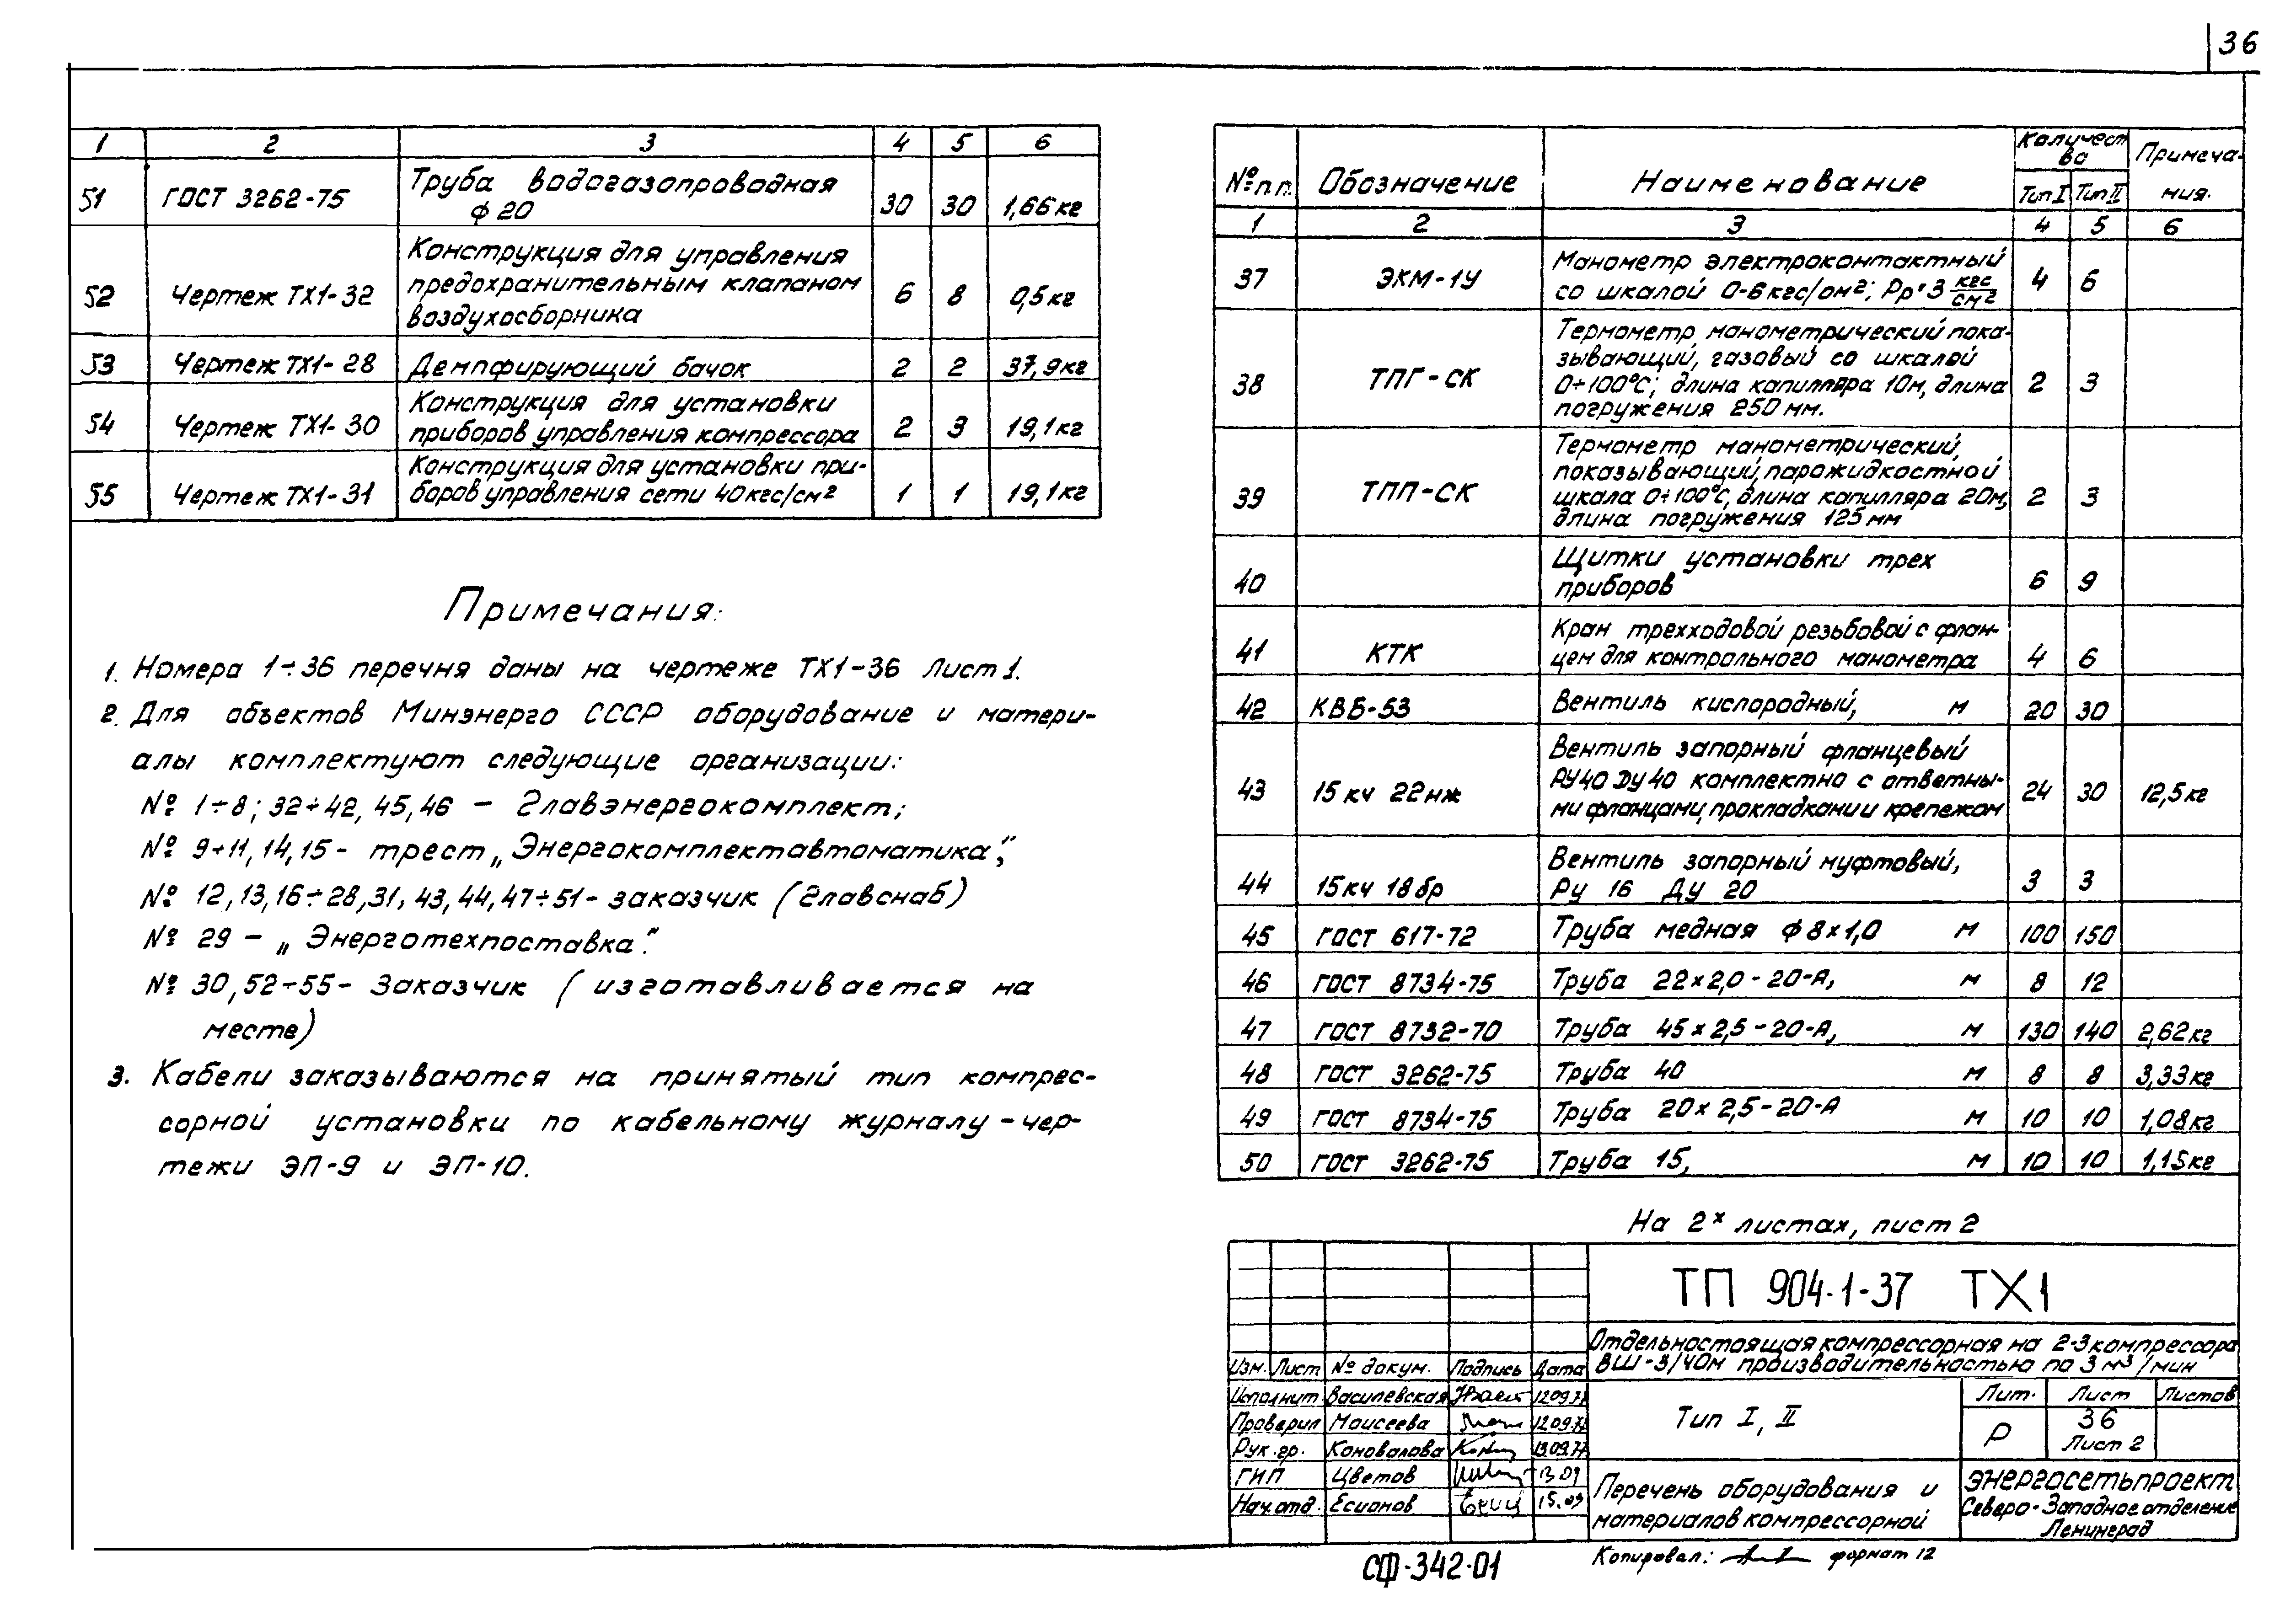 36
1 2 3 4 5 6
51 ГОСТ 3262-75 Труба водогазопроводная
ф 20 30 30 1,66кг
Конструкция для управления
52 Чертеж ТХ1-32 предохранительным клапаном 6 8 0,5кг
воздухосборника
53 Чертеж ТХ1-28 Демпфирующий бачок 2 2 37,9кг
Конструкция для установки
54 Чертеж ТХ1-30 приборов управления компрессора 2 3 19,1кг
Конструкция для установки при-
55 Чертеж ТХ1-31 боров управления сети 40кгс/см² 1 1 19,1кг
Примечания:
1. Номера 1÷36 перечня даны на чертеже ТХ1-36 Лист 1.
2. Для объектов Минэнерго СССР оборудование и матери-
алы комплектуют следующие организации:
№ 1÷8; 32÷42, 45, 46 – Главэнергокомплект;
№ 9÷11, 14, 15 - трест „Энергокомплектавтоматика";
№ 12, 13, 16÷28, 31, 43, 44, 47÷51 - заказчик (Главснаб)
№ 29 – „Энерготехпоставка".
№ 30, 52÷55 - Заказчик (изготавливается на
месте)
3. Кабели заказываются на принятый тип компрес-
сорной установки по кабельному журналу - чер-
тежи ЭП-9 и ЭП-10.
№ п.п. Обозначение Наименование Количест Примеча-
ва
Тип I Тип II ния.
1 2 3 4 5 6
37 ЭКМ-1У Манометр электроконтактный 4 6
со шкалой 0-6 кгс/см²; Рр=3 кгс/см²
Термометр манометрический пока-
зывающий, газовый со шкалой
38 ТПГ-СК 0÷100°С; длина капилляра 10м, длина 2 3
погружения 250 мм.
Термометр манометрический,
показывающий, парожидкостной
39 ТПП-СК шкала 0÷100°С, длина капилляра 20м, 2 3
длина погружения 125 мм
40 Щитки установки трех 6 9
приборов
Кран трехходовой резьбовой с флан-
41 КТК цем для контрольного манометра 4 6
42 КВБ-53 Вентиль кислородный, м 20 30
Вентиль запорный фланцевый
43 15 кч 22нж РУ40 ДУ40 комплектно с ответны- 24 30 12,5кг
ми фланцами, прокладками и крепежом
Вентиль запорный муфтовый,
44 15кч 18бр Ру 16 Ду 20 3 3
45 ГОСТ 617-72 Труба медная ф 8×1,0 м 100 150
46 ГОСТ 8734-75 Труба 22×2,0-20-А, м 8 12
47 ГОСТ 8732-70 Труба 45×2,5-20-А, м 130 140 2,62кг
48 ГОСТ 3262-75 Труба 40 м 8 8 3,33кг
49 ГОСТ 8734-75 Труба 20×2,5-20-А м 10 10 1,08кг
50 ГОСТ 3262-75 Труба 15, м 10 10 1,15кг
На 2х листах, лист 2
ТП 904-1-37 ТХ1
Отдельностоящая компрессорная на 2-3 компрессора
ВШ-3/40м производительностью по 3 м³/мин
Изм. Лист № докум. Подпись Дата
Исполнит Василевская 12.09.77
Проверил Моисеева 12.09.77
Рук. гр. Коновалова 13.09.77
ГИП Цветов 13.09
Нач.отд. Есионов 15.09
Тип I, II
Лит. Лист Листов
Р 36
Лист 2
Перечень оборудования и
материалов компрессорной
ЭНЕРГОСЕТЬПРОЕКТ
Северо-Западное отделение
Ленинград
СФ-342-01
Копировал: формат 12